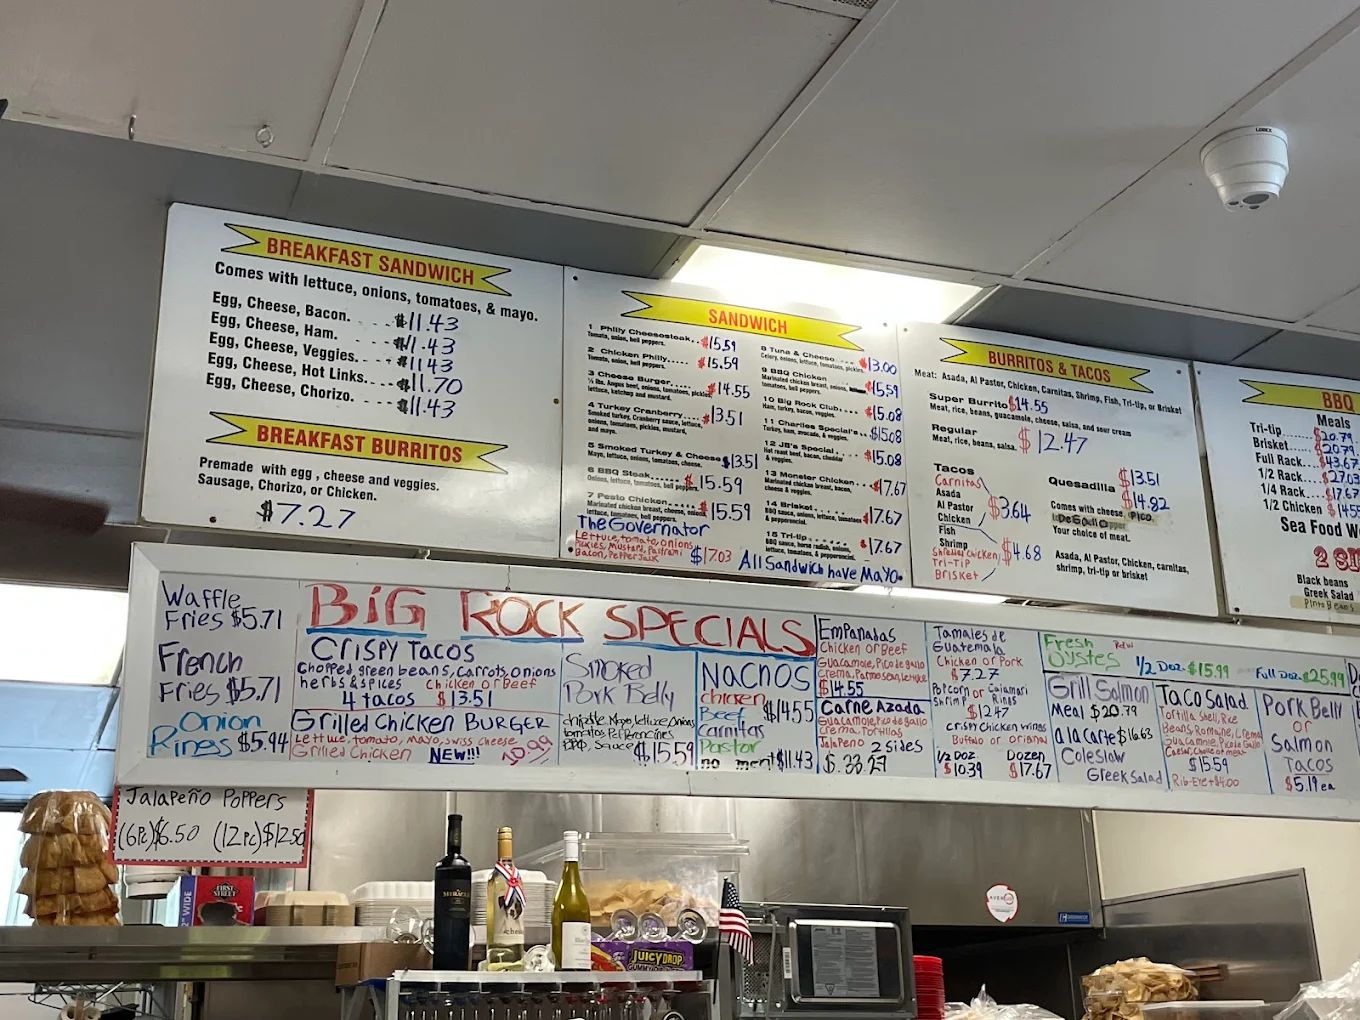 LOREX
BREAKFAST SANDWICH
Comes with lettuce, onions, tomatoes, & mayo.
Egg, Cheese, Bacon. $11.43
Egg, Cheese, Ham. $11.43
Egg, Cheese, Veggies. $11.43
Egg, Cheese, Hot Links. $11.70
Egg, Cheese, Chorizo. $11.43
BREAKFAST BURRITOS
Premade with egg , cheese and veggies.
Sausage, Chorizo, or Chicken.
$7.27
SANDWICH
1 Philly Cheesesteak $15.59
Tomato, onion, bell peppers.
2 Chicken Philly $15.59
Tomato, onion, bell peppers.
3 Cheese Burger $14.55
½ lbs. Angus beef, onions, tomatoes, pickles,
lettuce, ketchup and mustard.
4 Turkey Cranberry $13.51
Smoked turkey, Cranberry sauce, lettuce,
onions, tomatoes, pickles, mustard,
and mayo.
5 Smoked Turkey & Cheese $13.51
Mayo, lettuce, onions, tomatoes, cheese.
6 BBQ Steak $15.59
Onions, lettuce, tomatoes, bell peppers.
7 Pesto Chicken $15.59
Marinated chicken breast, cheese, onions,
lettuce, tomatoes, bell peppers.
The Governator
Lettuce, tomato, onion,
Pickles, Mustard, Pastrami
Bacon, Pepper Jack $17.03
8 Tuna & Cheese $13.00
Celery, onions, lettuce, tomatoes, pickles.
9 BBQ Chicken $15.59
Marinated chicken breast, onions,
tomatoes, bell peppers.
10 Big Rock Club $15.08
Ham, turkey, bacon, veggies.
11 Charlies Special's $15.08
Turkey, ham, avocado, & veggies.
12 JB's Special $15.08
Hot roast beef, bacon, cheddar
& veggies.
13 Monster Chicken $17.67
Marinated chicken breast, bacon,
cheese & veggies.
14 Brisket $17.67
BBQ sauce, onions, lettuce, tomatoes
& pepperoncini.
15 Tri-tip $17.67
BBQ sauce, horse radish, onions,
lettuce, tomatoes, & pepperoncini.
All Sandwich have Mayo.
BURRITOS & TACOS
Meat: Asada, Al Pastor, Chicken, Carnitas, Shrimp, Fish, Tri-tip, or Brisket
Super Burrito $14.55
Meat, rice, beans, guacamole, cheese, salsa, and sour cream
Regular
Meat, rice, beans, salsa. $12.47
Tacos
Carnitas
Asada
Al Pastor $3.64
Chicken
Fish
Shrimp $4.68
Shredded Chicken
Tri-Tip
Brisket
Quesadilla $13.51
$14.82
Comes with cheese, Pico
De Gallo
Your choice of meat.
Asada, Al Pastor, Chicken, carnitas,
shrimp, tri-tip or brisket
BBQ
Meals
Tri-tip $20.79
Brisket $20.79
Full Rack $43.67
1/2 Rack $27.03
1/4 Rack $17.67
1/2 Chicken $14.55
Sea Food
2 SI
Black beans
Greek Salad
Pinto Beans
Waffle
Fries $5.71
French
Fries $5.71
Onion
Rings $5.94
BIG ROCK SPECIALS
Crispy Tacos
Chopped green beans, carrots, onions
herbs & spices Chicken or Beef
4 tacos $13.51
Grilled Chicken BURGER
Lettuce, tomato, mayo, swiss cheese
Grilled Chicken NEW!!!
Smoked
Pork Belly
chipotle Mayo, lettuce, onions
tomatoes Pepperoncinis
BBQ, sauce $15.59
NACHOS
chicken
Beef $14.55
Carnitas
Pastor
no meat $11.43
Empanadas
Chicken or Beef
Guacamole, Pico de gallo
Crema, Parmesean, lettuce
$14.55
Carne Azada
Guacamole, Pico de gallo
Crema, Tortillas
Jalapeno 2 sides
$33.27
Tamales de
Guatemala
Chicken or Pork
$7.27
Popcorn or Calamari
Shrimp Rings
$12.47
crispy Chicken wings
Buffalo or original
1/2 Doz Dozen
$10.39 $17.67
Fresh
Oystes
1/2 Doz $15.99 Full Doz $25.99
Grill Salmon
Meal $20.79
a la Carte $16.63
Coleslaw
Greek Salad
Taco Salad
Tortilla Shell, Rice
Beans, Romaine, Crema
Guacamole, Pico de Gallo
Caesar, Choice of meat
$15.59
Rib-Eye +$4.00
Pork Belly
or
Salmon
Tacos
$5.19 ea
Jalapeño Poppers
(6pc) $6.50 (12pc) $12.50
FIRST
STREET
2" WIDE
MIRACLE
JUICY DROP
GUMMY